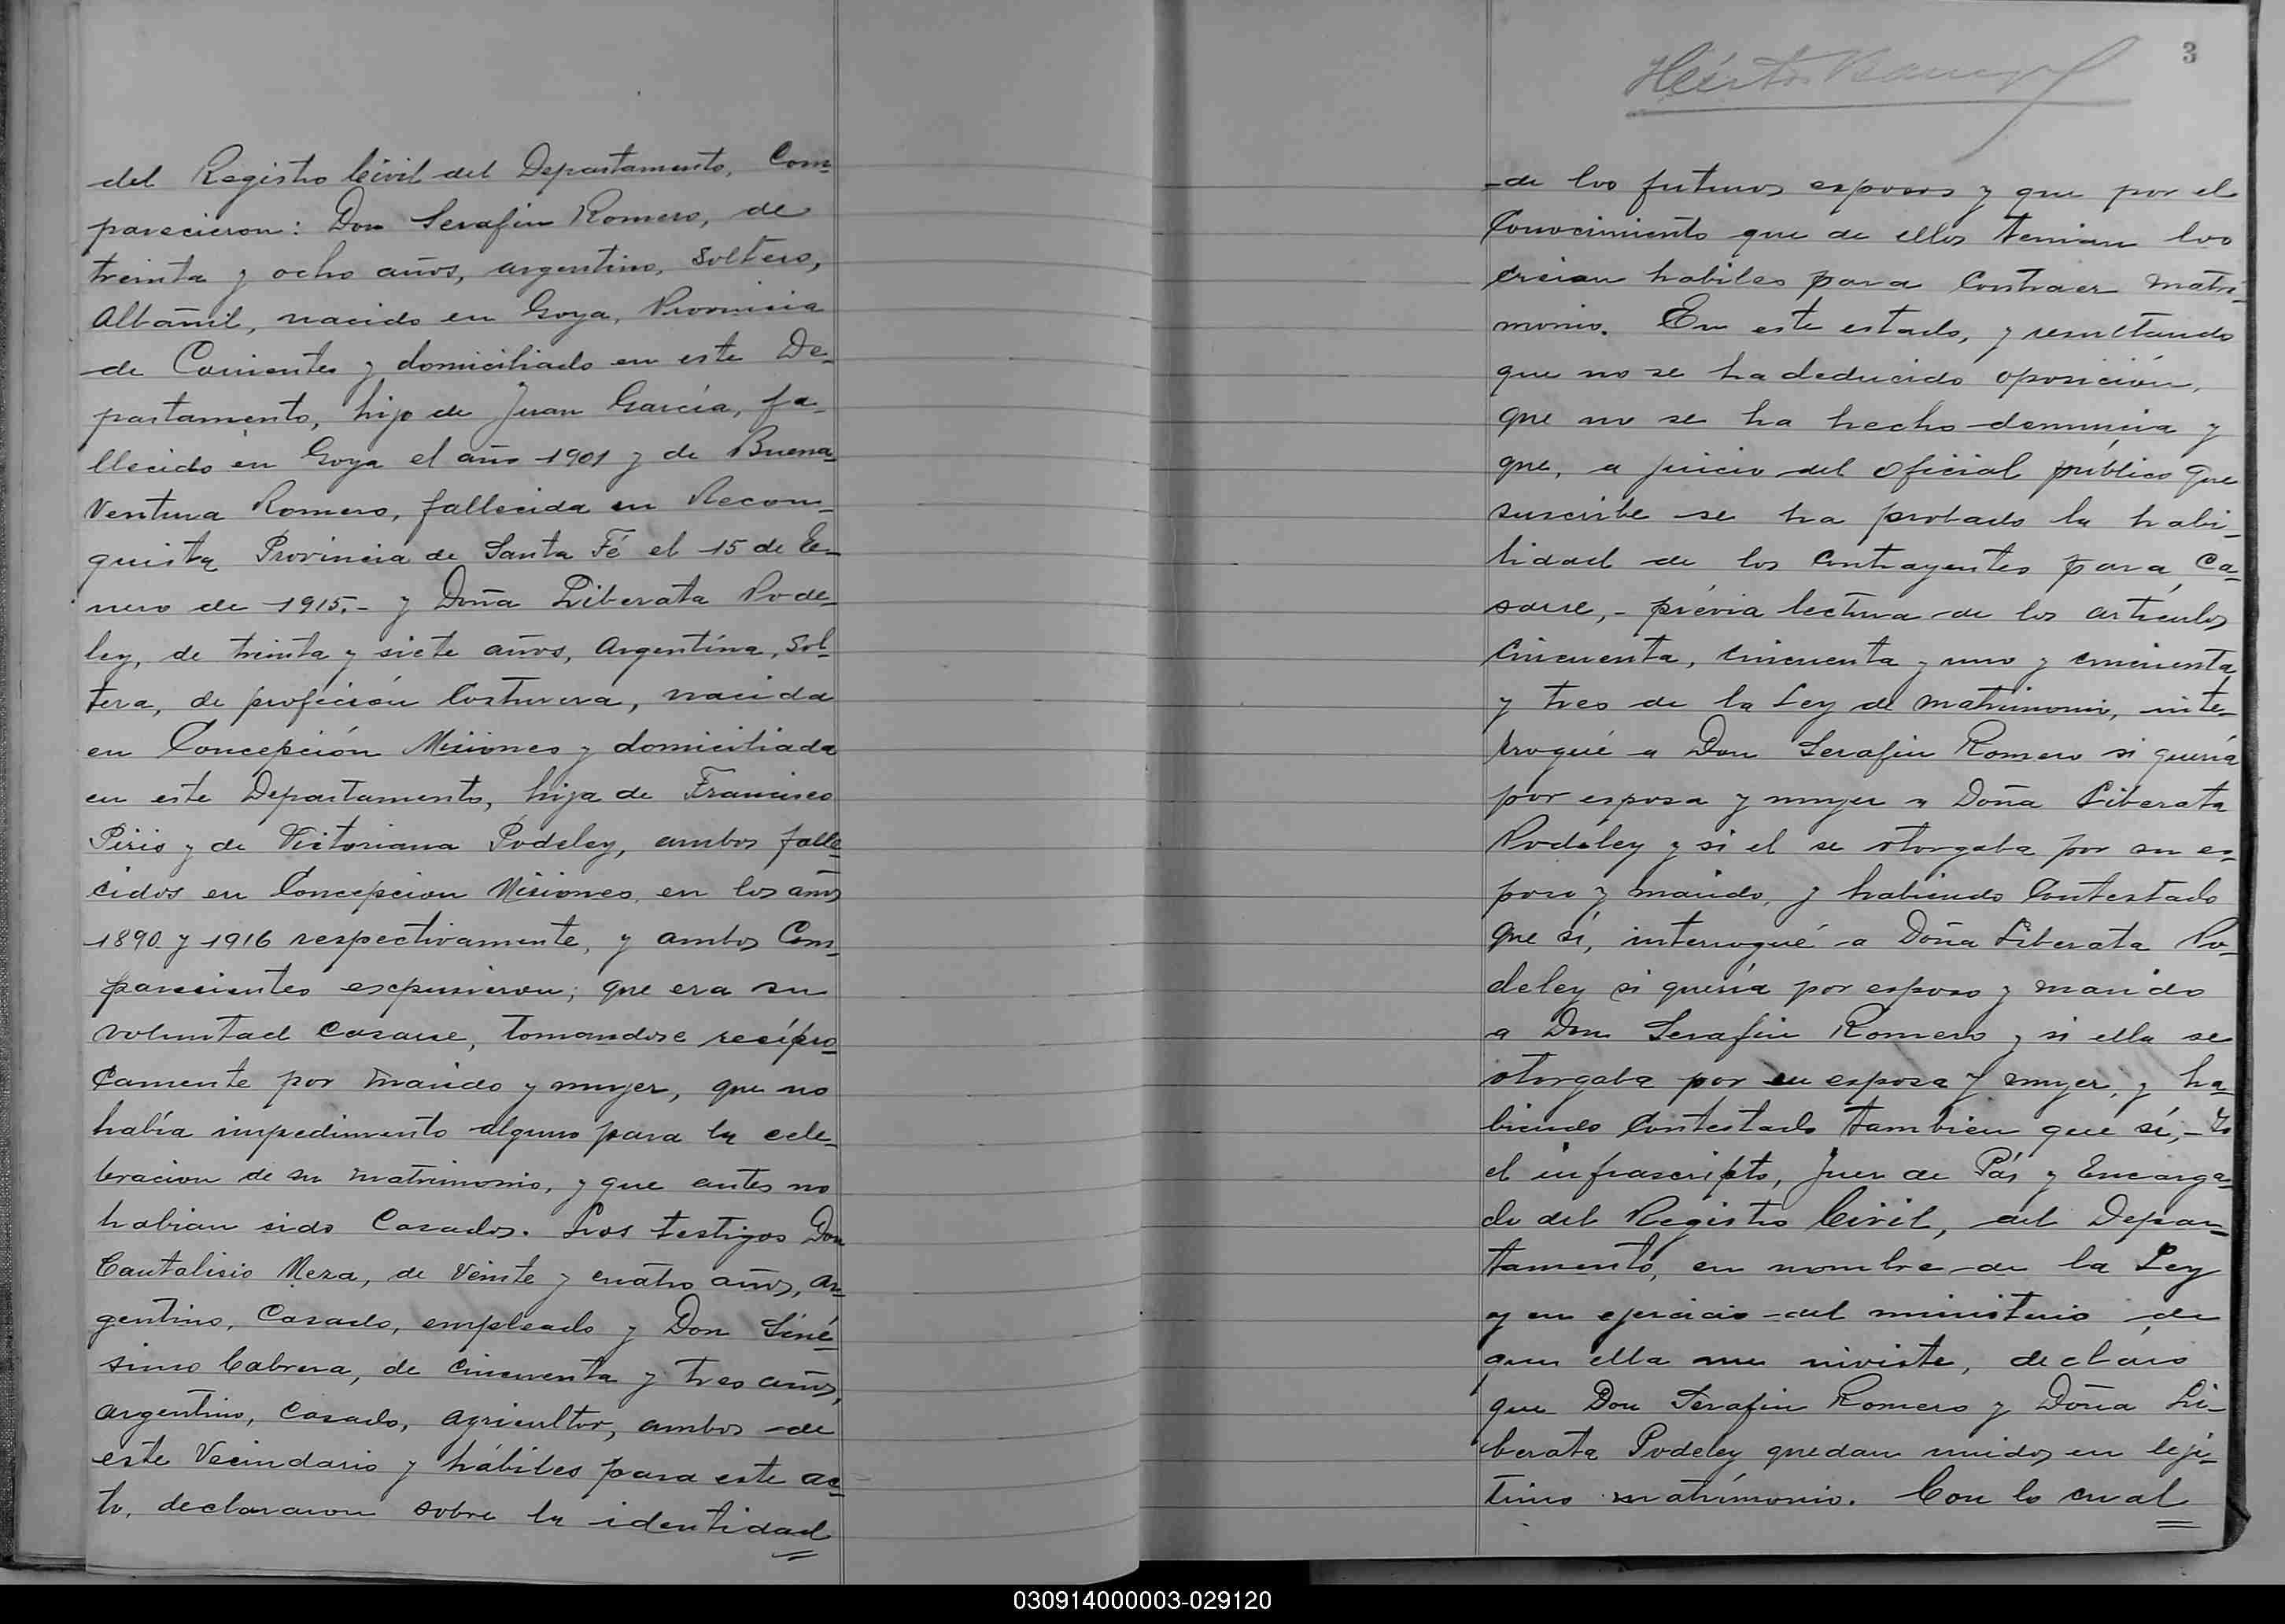 del Registro Civil del Departamento, Com-
parecieron: Don Serafin Romero, de
treinta y ocho años, argentino, soltero,
Albañil, nacido en Goya, Provincia
de Corrientes y domiciliado en este De-
partamento, hijo de Juan García, fa-
llecido en Goya el año 1901 y de Buena-
Ventura Romero, fallecida en Recon-
quista Provincia de Santa Fé el 15 de E-
nero de 1915.- y Doña Liberata Pode-
ley, de treinta y siete años, Argentína, Sol-
tera, de profición Costurera, nacida
en Concepción Misiones y domiciliada
en este Departamento, hija de Francisco
Piris y de Victoriana Podeley, ambos falle-
cidos en Concepcion Misiones, en los años
1890 y 1916 respectivamente, y ambos Com-
parecientes expusieron; que era su
voluntad casarse, tomandose recípro-
camente por marido y mujer, que no
había impedimento alguno para la cele-
bracion de su matrimonio, y que antes no
habian sido Casados. Los testigos Don
Cantalisio Meza, de Veinte y cuatro años, ar-
gentino, Casado, empleado y Don Siné-
simo Cabrera, de Cincuenta y tres años,
argentino, Casado, agricultor, ambos de
este Vecindario y hábiles para este ac-
to, declararon sobre la identidad
3
de los futuros esposos y que por el
Conocimiento que de ellos tenian los
creian habiles para Contraer matri-
monio. En este estado, y resultando
que no se ha deducido oposición,
que no se ha hecho denuncia y
que, a juicio del oficial público que
suscribe se ha probado la habi-
lidad de los Contrayentes para Ca-
sarse, - prévia lectura de los artículos
Cincuenta, Cincuenta y uno y cincuenta
y tres de la Ley de matrimonio, inte-
rrogué a Don Serafin Romero si quería
por esposa y mujer a Doña Liberata
Podeley y si el se otorgaba por su es-
poso y marido, y habiendo Contestado
que sí, interrogué a Doña Liberata Po-
deley si quería por esposo y marido
a Don Serafin Romero y si ella se
otorgaba por su esposa y mujer, y ha-
biendo Contestado tambien que sí, - Yo
el infrascripto, Juez de Páz y Encarga-
do del Registro Civil, del Depar-
tamento, en nombre de la Ley
y en ejercicio del ministerio de
que ella me inviste, declaro
que Don Serafin Romero y Doña Li-
berata Podeley quedan unidos en legi-
timo matrímonio. Con lo cual
030914000003-029120